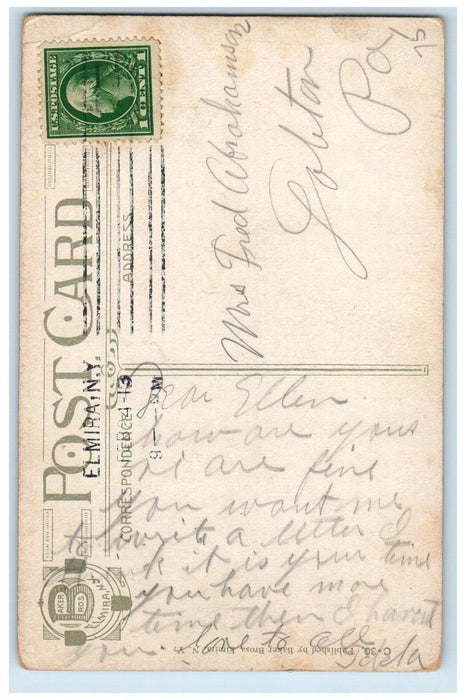 U.S. POSTAGE
1 CENT 1
ELMIRA, N.Y.
POST CARD
CORRESPONDENCE
ADDRESS
Mrs Fred Abrahamson
Pa
15
Dear Ellen
how are yous
we are fine
you want me
to write a letter I
it is your time
you have more
time then I havent
you. love to all
BAKER BROS
ELMIRA, N.Y.
C-30. Published by Baker Bros., Elmira, N. Y.